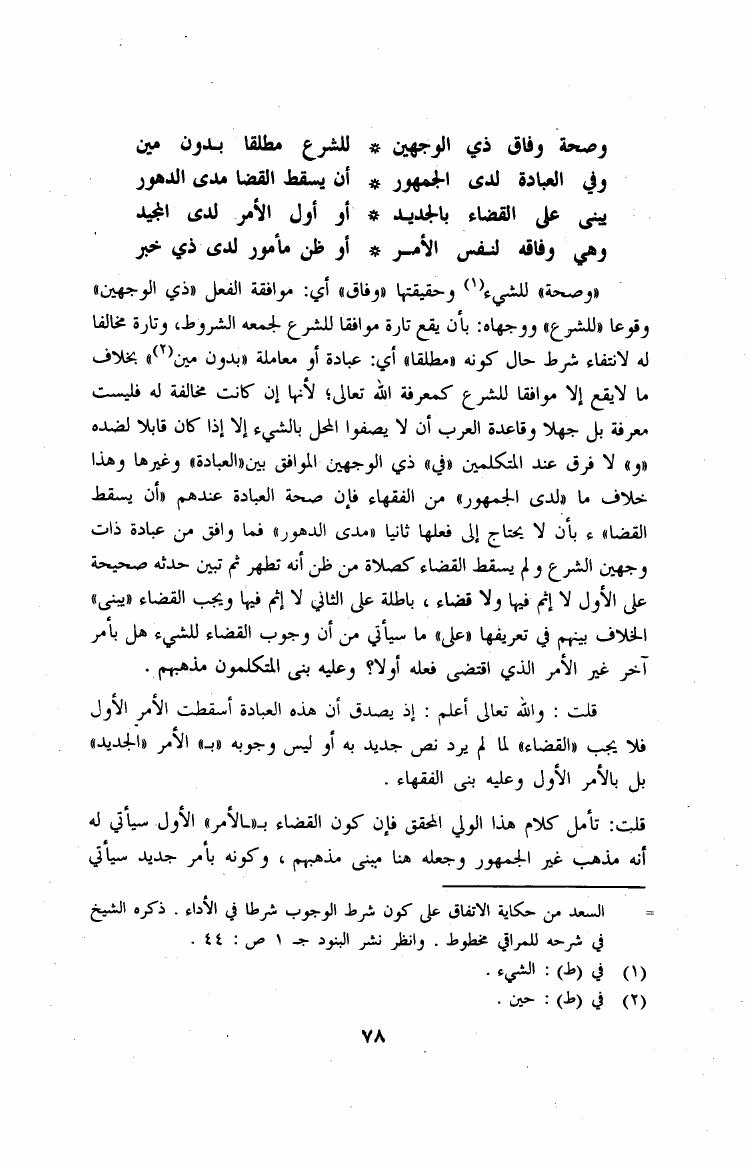 وصحة وفاق ذي الوجهين * للشرع مطلقا بـدون مين
وفي العبادة لدى الجمهور * أن يسقط القضا مدى الدهور
يبنى على القضاء بالجديـد * أو أول الأمر لدى المجيد
وهي وفاقه لنـفس الأمـر * أو ظن مأمور لدى ذي خبر
«وصحة» للشيء(١) وحقيقتها «وفاق» أي: موافقة الفعل «ذي الوجهين»
وقوعا «للشرع» ووجهاه: بأن يقع تارة موافقا للشرع لجمعه الشروط، وتارة مخالفا
له لانتفاء شرط حال كونه «مطلقا» أي: عبادة أو معاملة «بدون مين(٢)» بخلاف
ما لايقع إلا موافقا للشرع كمعرفة الله تعالى؛ لأنها إن كانت مخالفة له فليست
معرفة بل جهلا وقاعدة العرب أن لا يصفوا المحل بالشيء إلا إذا كان قابلا لضده
«و» لا فرق عند المتكلمين «في» ذي الوجهين الموافق بين«العبادة» وغيرها وهذا
خلاف ما «لدى الجمهور» من الفقهاء فإن صحة العبادة عندهم «أن يسقط
القضا» ء بأن لا يحتاج إلى فعلها ثانيا «مدى الدهور» فما وافق من عبادة ذات
وجهين الشرع و لم يسقط القضاء كصلاة من ظن أنه تطهر ثم تبين حدثه صحيحة
على الأول لا إثم فيها ولا قضاء ، باطلة على الثاني لا إثم فيها ويجب القضاء «يبنى»
الخلاف بينهم في تعريفها «على» ما سيأتي من أن وجوب القضاء للشيء هل بأمر
آخر غير الأمر الذي اقتضى فعله أولا؟ وعليه بنى المتكلمون مذهبهم .
قلت : والله تعالى أعلم : إذ يصدق أن هذه العبادة أسقطت الأمر الأول
فلا يجب «القضاء» لما لم يرد نص جديد به أو ليس وجوبه «بـ» الأمر «الجديد»
بل بالأمر الأول وعليه بنى الفقهاء .
قلت: تأمل كلام هذا الولي المحقق فإن كون القضاء بـ«ـالأمر» الأول سيأتي له
أنه مذهب غير الجمهور وجعله هنا مبنى مذهبهم ، وكونه بأمر جديد سيأتي
= السعد من حكاية الاتفاق على كون شرط الوجوب شرطا في الأداء . ذكره الشيخ
في شرحه للمراقي مخطوط . وانظر نشر البنود جـ ١ ص : ٤٤ .
(١) في (ط) : الشيء .
(٢) في (ط) : حين .
٧٨